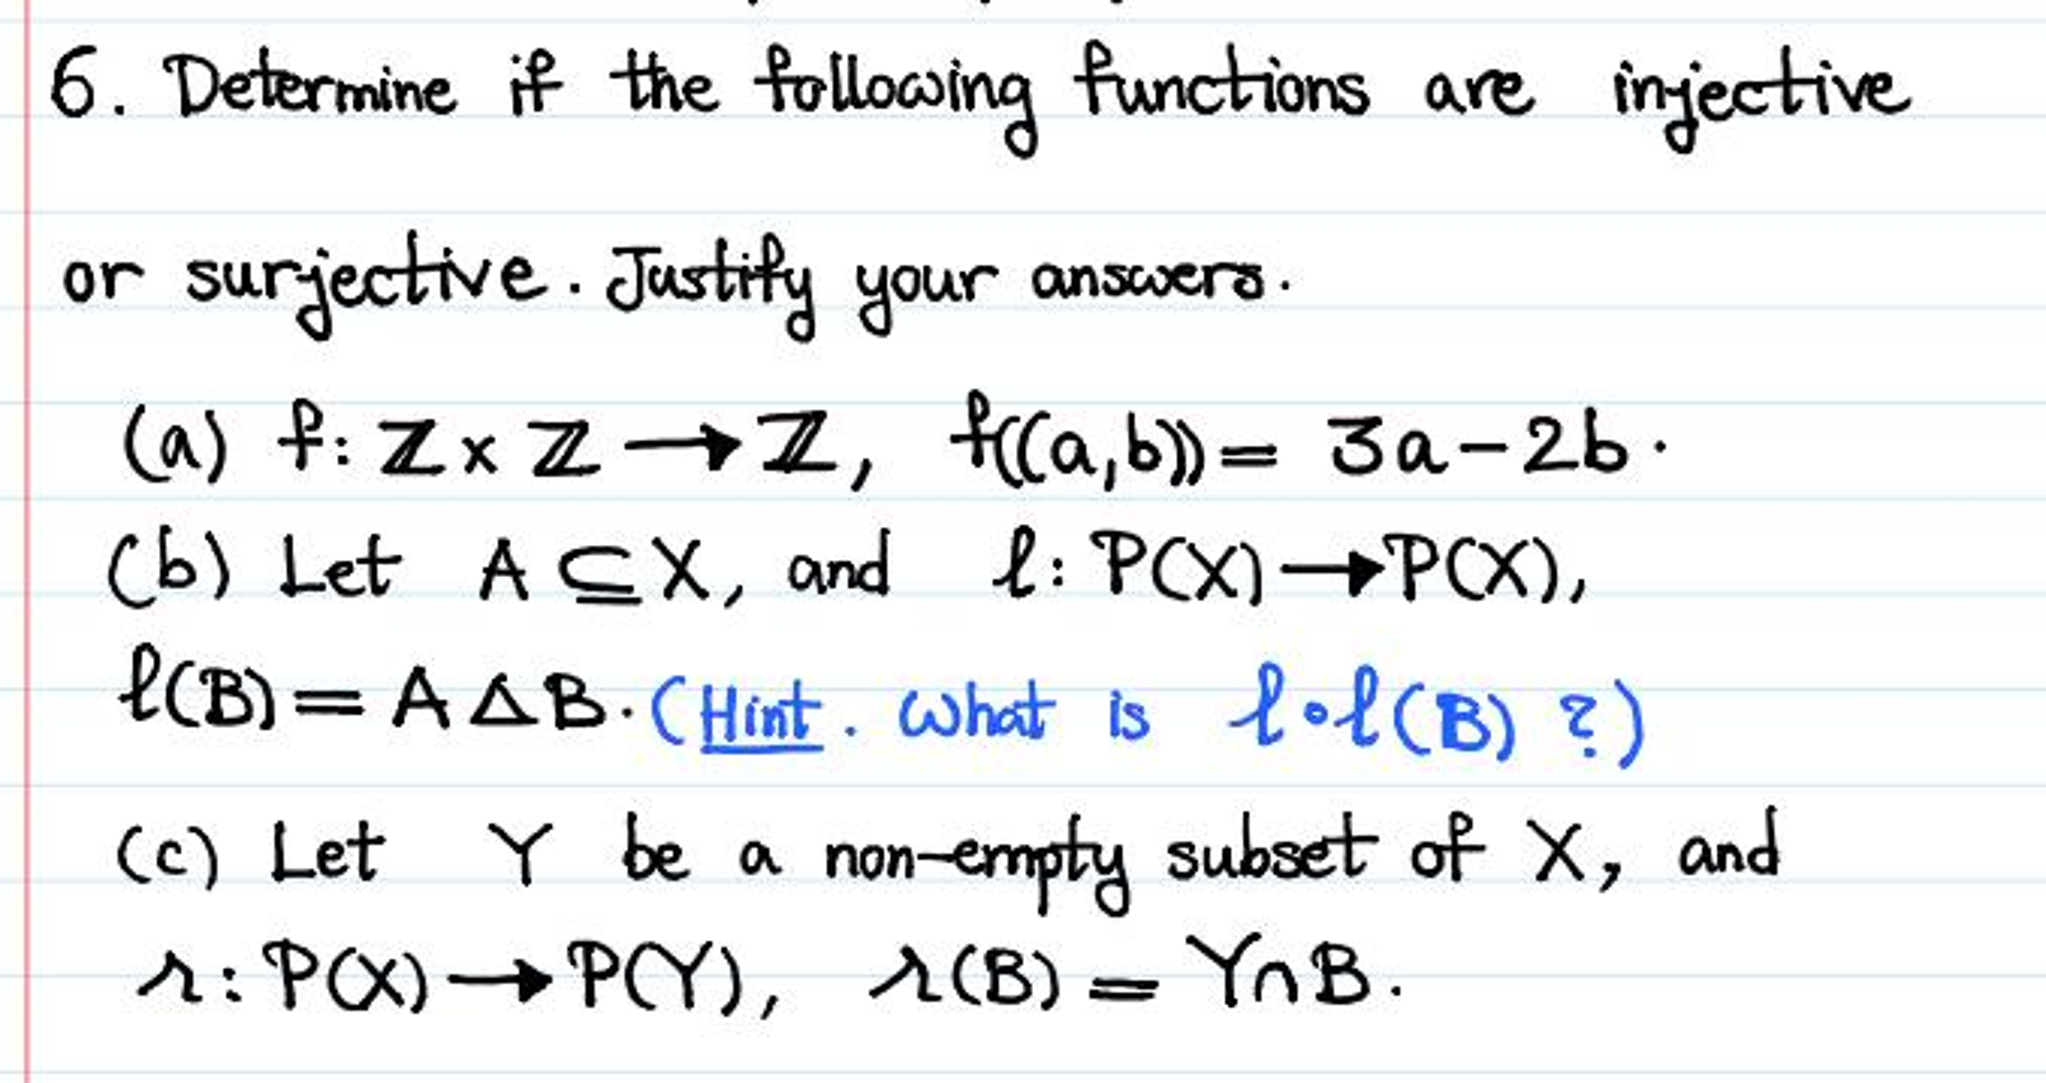 6. Determine if the following functions are injective
or surjective. Justify your answers.
(a) f: ℤ×ℤ→ℤ, f((a,b))= 3a-2b.
(b) Let A⊆X, and ℓ: P(X)→P(X),
ℓ(B)= A△B. (Hint. What is ℓ∘ℓ(B) ?)
(c) Let Y be a non-empty subset of X, and
r: P(X)→P(Y), r(B)= Y∩B.